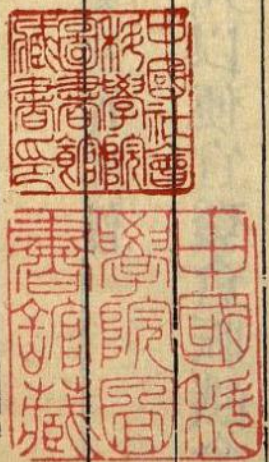 中國社會
科學院
圖書館
藏書印
中國科
學院圖
書舘藏